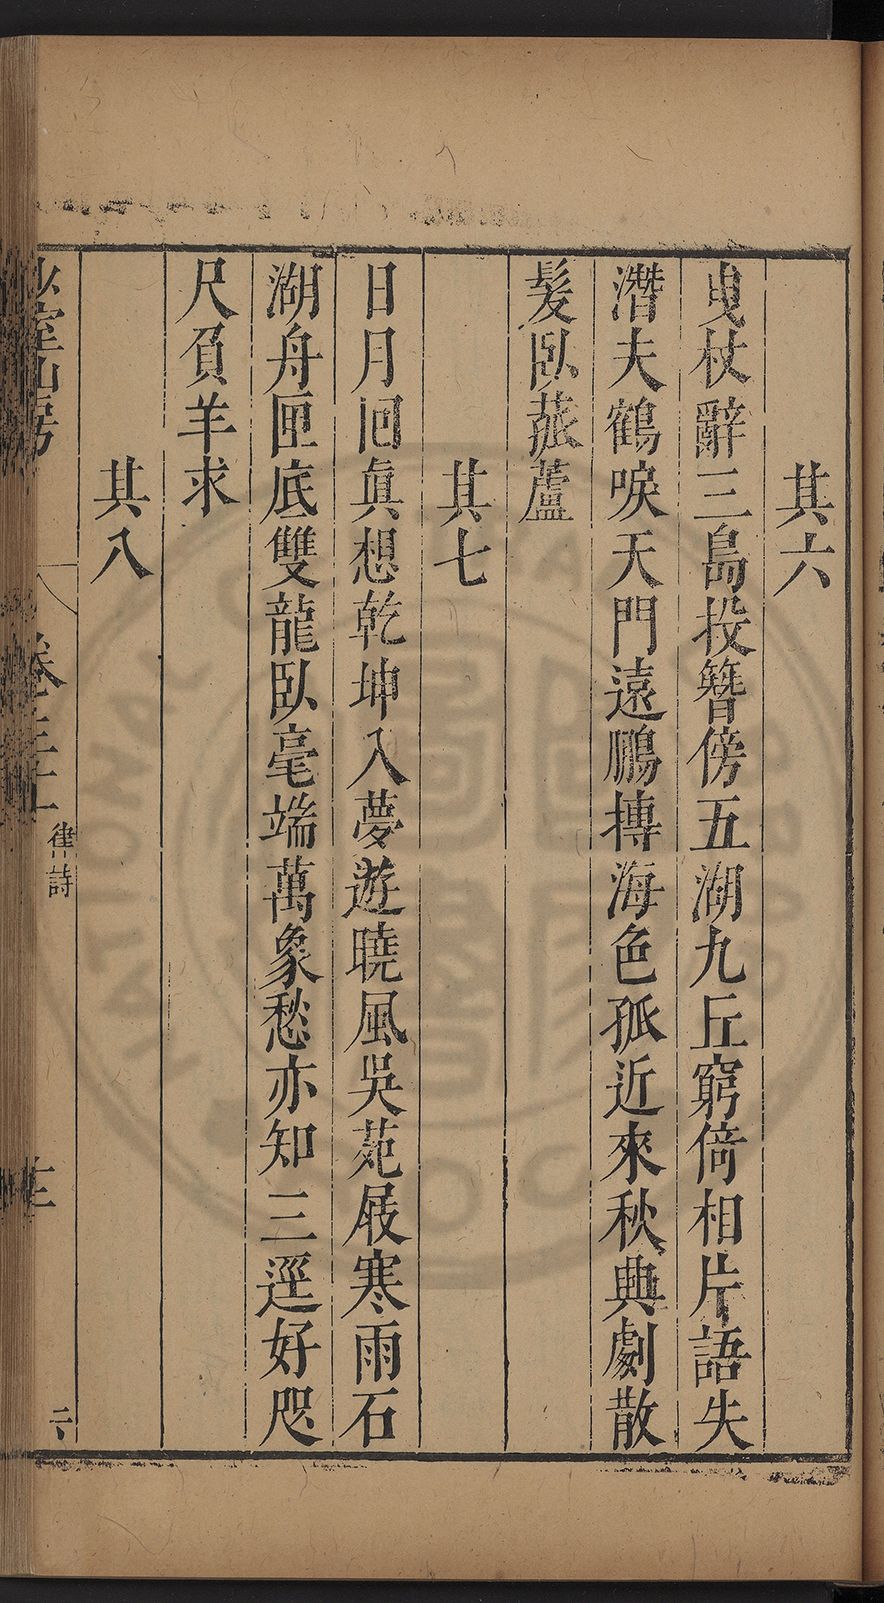 其六
曳杖辭三島投簪傍五湖九丘窮倚相片語失
潛夫鶴唳天門遠鵬摶海色孤近來秋興劇散
髮臥菰蘆
其七
日月回眞想乾坤入夢遊曉風吳苑屐寒雨石
湖舟匣底雙龍臥毫端萬象愁亦知三逕好咫
尺負羊求
其八
少室山房
卷三十
律詩